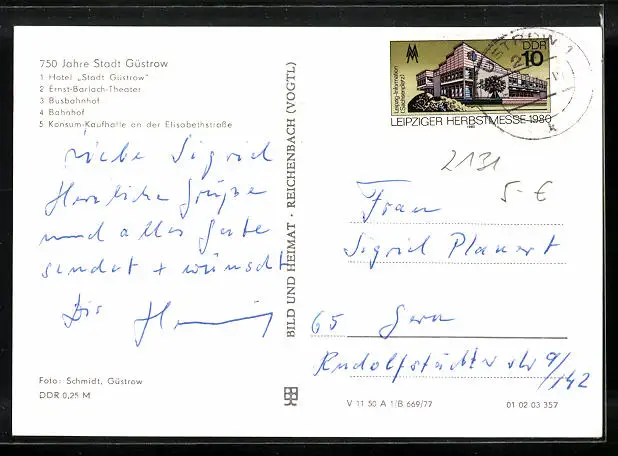 750 Jahre Stadt Güstrow
1 Hotel „Stadt Güstrow"
2 Ernst-Barlach-Theater
3 Busbahnhof
4 Bahnhof
5 Konsum-Kaufhalle an der Elisabethstraße
Liebe Sigrid
Herzliche Grüße
und alles Gute
sendet + wünscht
Dir
Foto: Schmidt, Güstrow
DDR 0,25 M
BILD UND HEIMAT · REICHENBACH (VOGTL)
Leipzig-Information
(Sachsenplatz)
DDR
10
LEIPZIGER HERBSTMESSE · 1980
1980
2131
5-€
Frau
Sigrid Planert
65 Gera
Rudolfstädter str 9/
/142
V 11 50 A 1/B 669/77
01 02 03 357